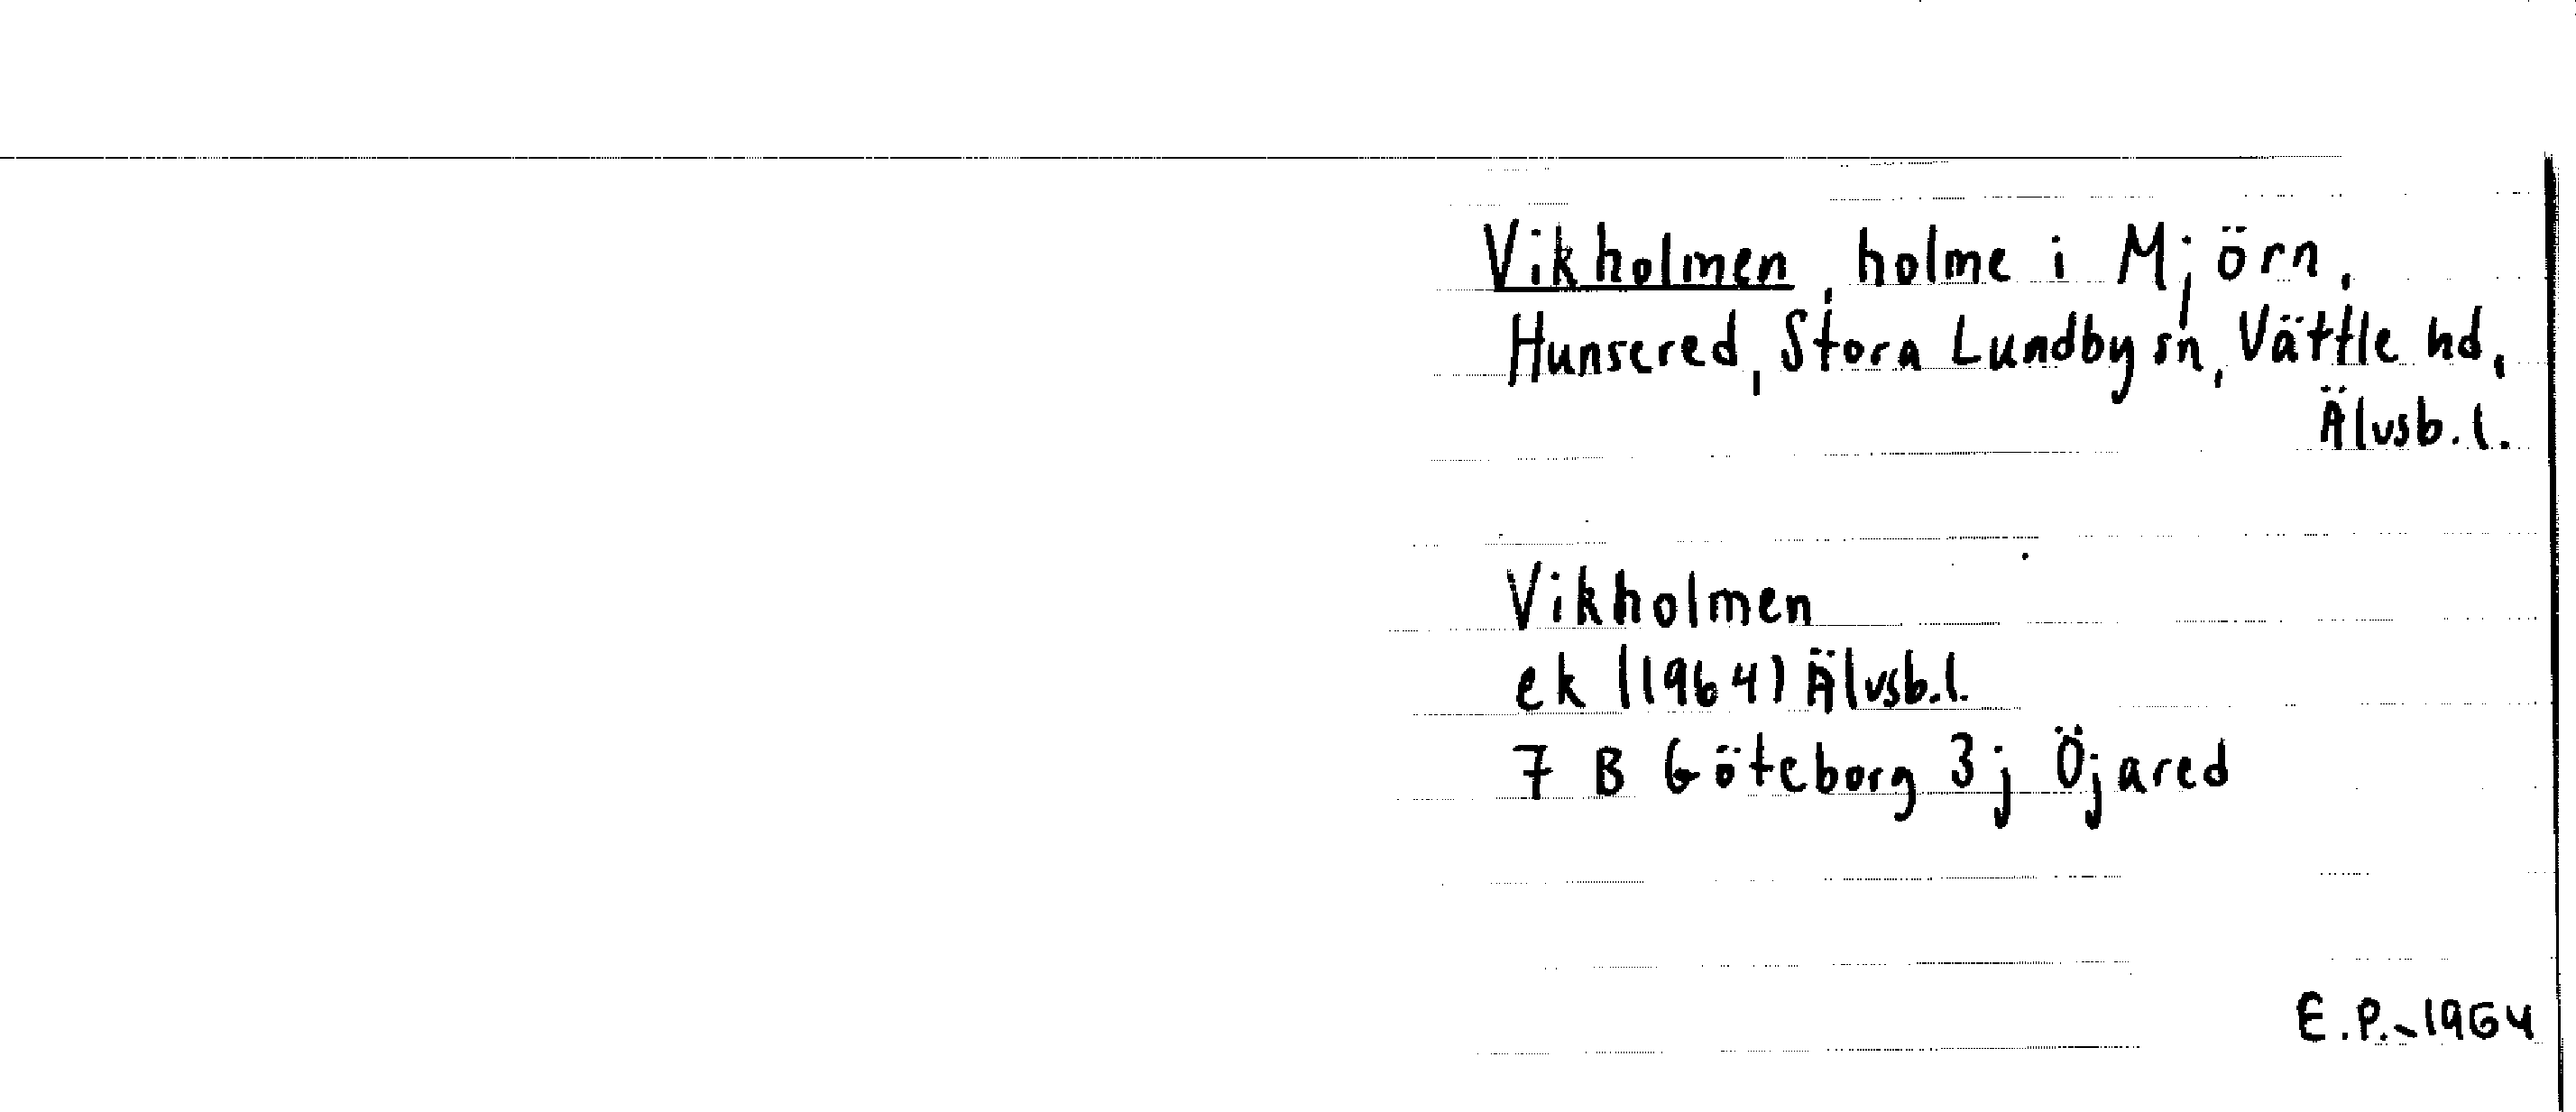 Vikholmen, holme i Mjörn,
Hunsered, Stora Lundby sn, Vättle hd,
Älvsb.l.
Vikholmen
ek (1964) Älvsb.l.
7 B Göteborg 3j Öjared
E.P.-1964